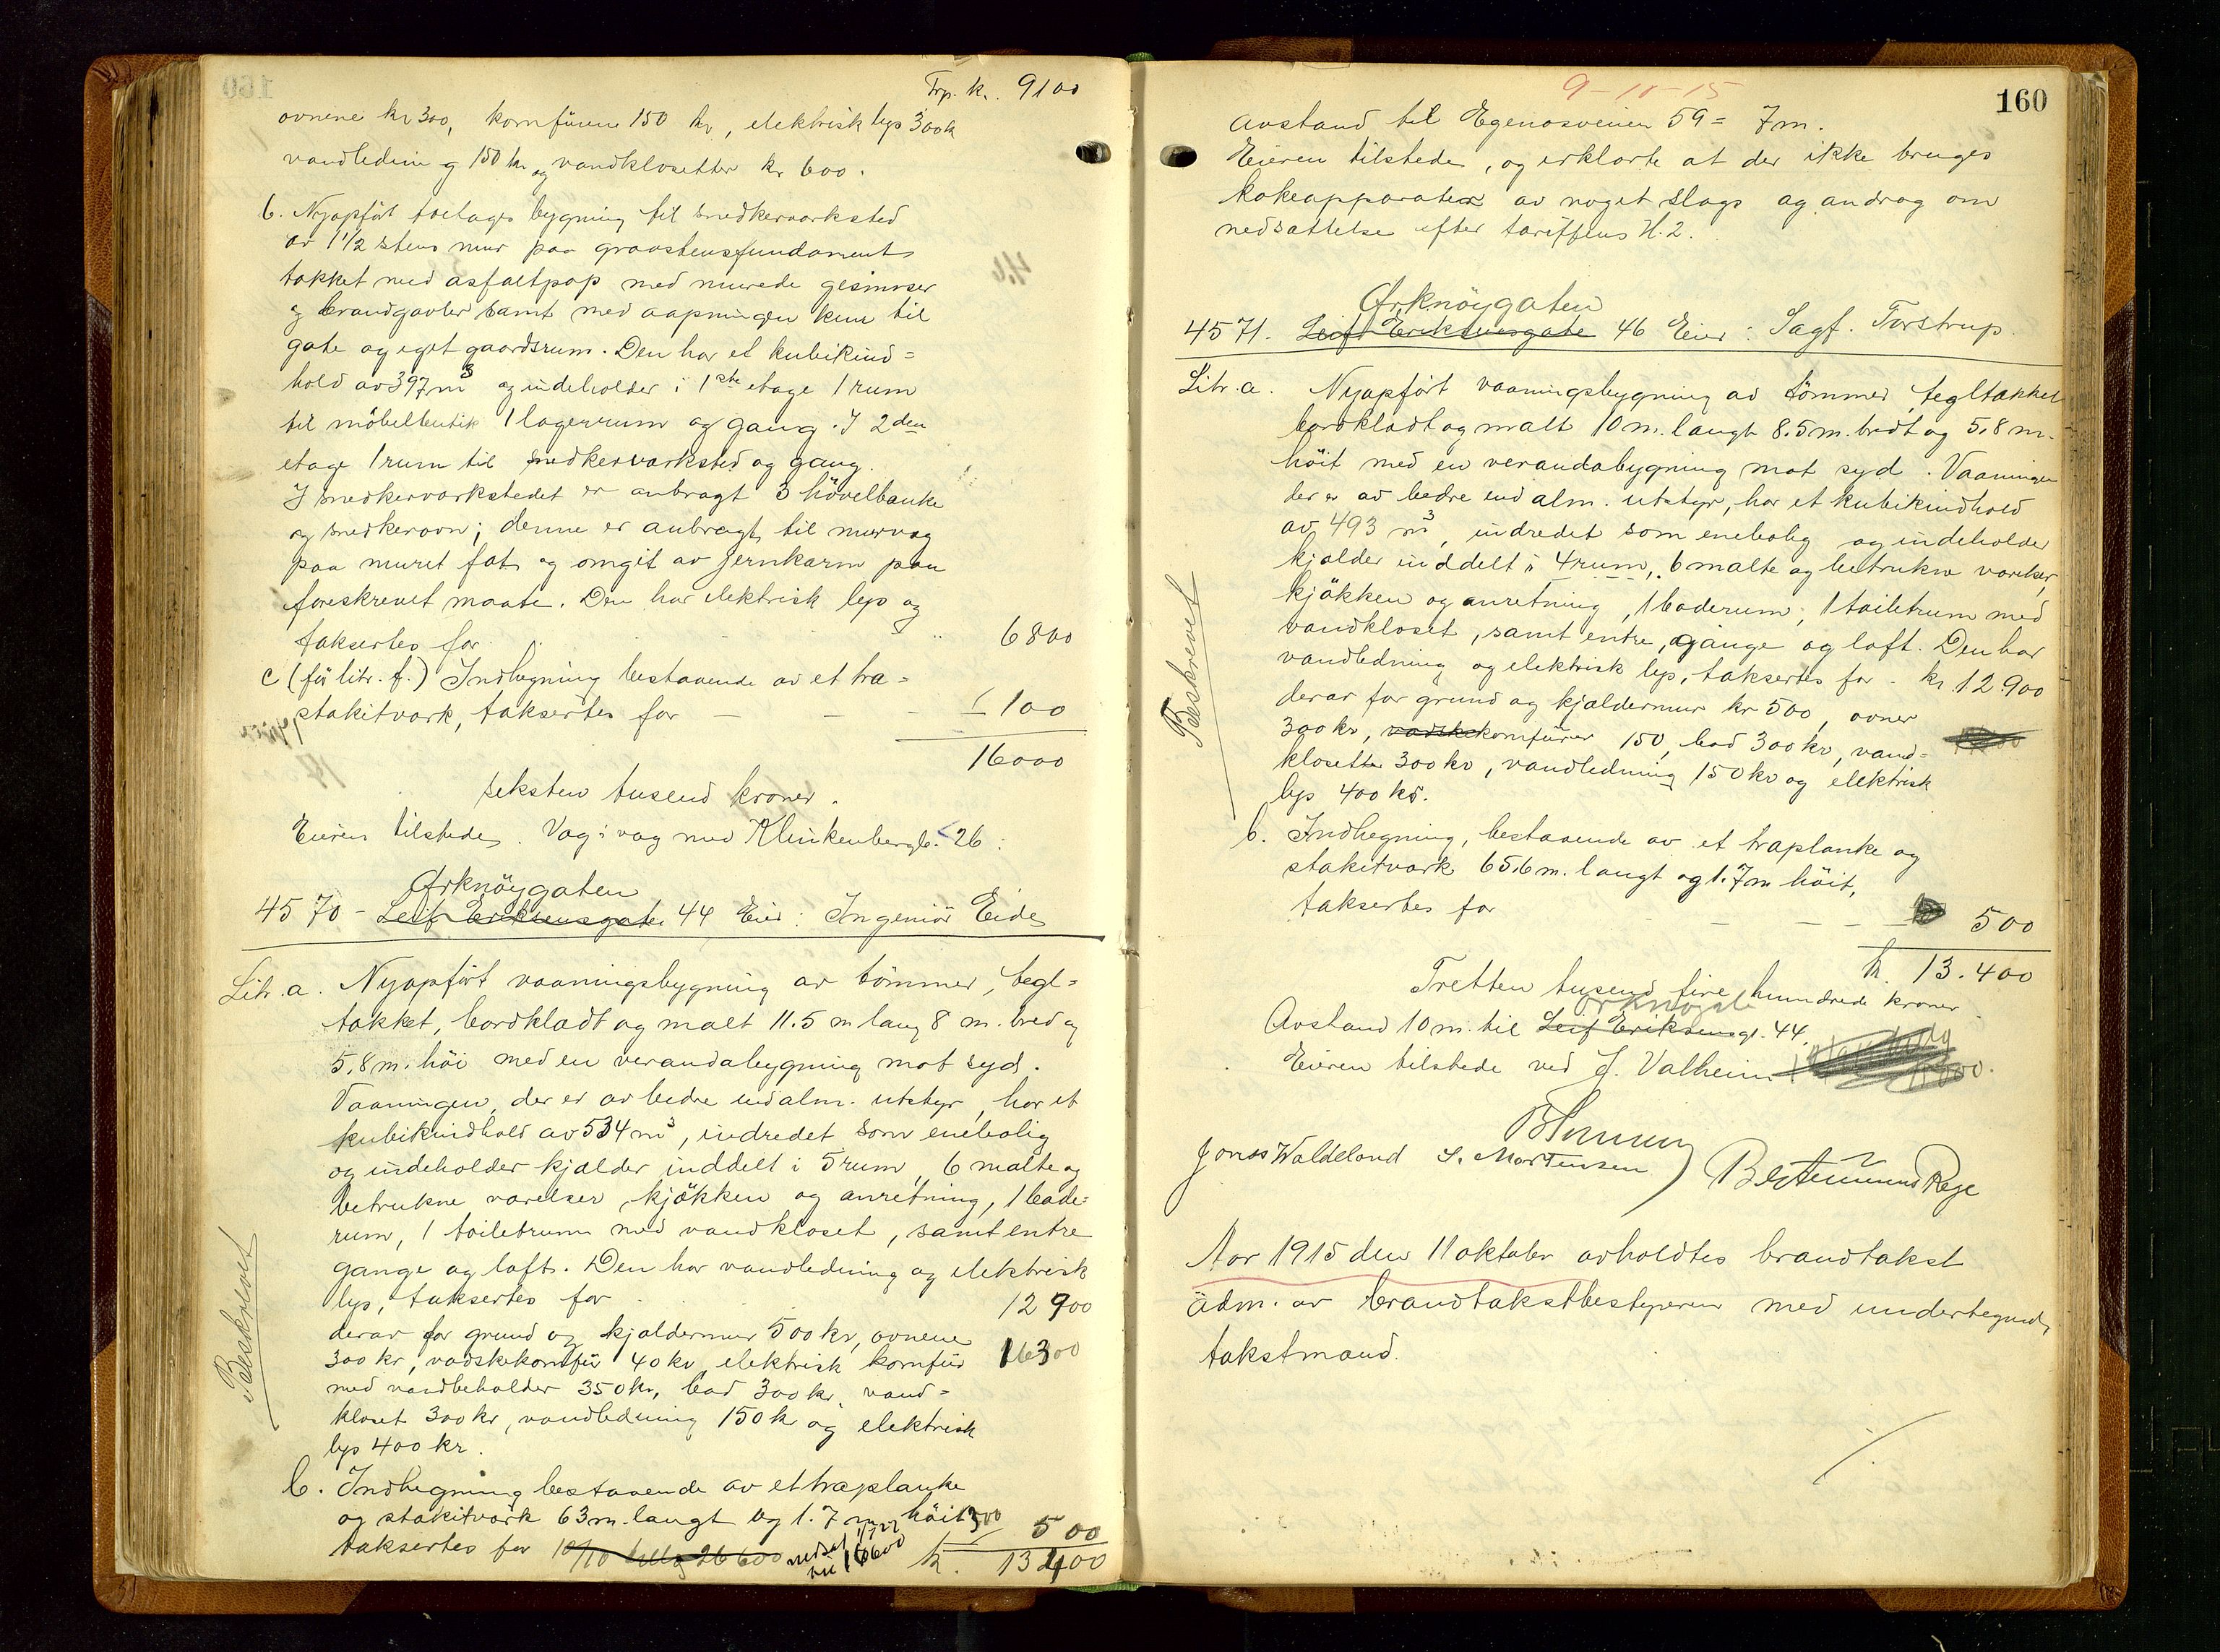 Trp. kr. 9100
ovnene kr 300, komfürene 150 kr, elektrisk lys 300 k
vandledning 150 kr og vandklosetter kr 600.
b. Nyopført toetages bygning til snedkerverksted
av 1 1/2 stens mur paa graastensfundament
tækket med asfaltpap med murede gesimser
og brandgavler samt med aapninger kun til
gate og eget gaardsrum. Den har et kubikind=
hold av 397 m3 og indeholder i 1ste etage 1 rum
til möbelbutik 1 lagerrum og gang. I 2den
etage 1 rum til snedkerverksted og gang.
I snedkerverkstedet er anbragt 3 hövelbænke
og snedkerovn; denne er anbragt til murvæg
paa muret fot og omgit av jernkarm paa
foreskrevet maate. Den har elektrisk lys og
taksertes for 6800
c (før litr. f.) Indhegning bestaaende av et træ=
stakitværk, taksertes for — — - 100
16000
seksten tusend kroner.
Eieren tilstede. Væg i væg med Klinkenbergb. 26.
Ørknöygaten
4570 - Leif Eriksensgate 44 Eier: Ingeniör Eide
Litr. a. Nyopført vaaningsbygning av tömmer, tegl=
tækket, bordklædt og malt 11.5 m lang 8 m. bred og
5,8 m. höi med en verandabygning mot syd.
Vaaningen, der er av bedre end alm. utstyr, har et
kubikindhold av 534 m3, indredet som enebolig
og indeholder kjælder inddelt i 5 rum, 6 malte og
betrukne værelser, kjökken og anretning, 1 bade=
rum, 1 toiletrum med vandkloset, samt entre
gange og loft. Den har vandledning og elektrisk
lys, taksertes for 12900
derav for grund og kjældermur 500 kr, ovnene
300 kr, vadskekomfür 40 kr elektrisk komfür 16300
med vandbeholder 350 kr, bad 300 kr, vand=
kloset 300 kr, vandledning 150 kr og elektrisk
lys 400 kr.
Beskrevet
b. Indhegning bestaaende av et træplanke
og stakitværk 63 m. langt og 1.7 m höit 300 500
taksertes for 10/10 26600 nedsat til 16600 kr. 13400
9-10-15
160
Avstand til Egenæsveien 59 = 7 m.
Eieren tilstede, og erklærte at der ikke bruges
kokeapparater av noget slags og androg om
nedsættelse efter tariffens H. 2.
Ørknöygaten
4571. Leif Eriksensgate 46 Eier: Sagf. Torstrup.
Litr. a. Nyopført vaaningsbygning av tömmer, tegltækket
bordklædt og malt 10 m. langt 8.5 m. bredt og 5,8 m.
höit med en verandabygning mot syd. Vaaningen
der er av bedre end alm. utstyr, har et kubikindhold
av 493 m3, indredet som enebolig og indeholder
kjælder inddelt i 4 rum, 6 malte og betrukne værelser,
kjökken og anretning, 1 baderum, 1 toiletrum med
vandkloset, samt entre, gange og loft. Den har
vandledning og elektrisk lys, taksertes for - kr. 12.900
derav for grund og kjældermur kr 500, ovner
300 kr, vadske komfürer 150, bad 300 kr, vand=
klosetter 300 kr, vandledning 150 kr og elektrisk
lys 400 kr.
Beskrevet
b. Indhegning, bestaaende av et træplanke og
stakitværk 65,6 m. langt og 1.7 m höit,
taksertes for — — — 500
kr. 13.400
Tretten tusend fire hundrede kroner.
Ørknöygt
Avstand 10 m. til Leif Eriksensgt. 44.
Eieren tilstede ved J. Valheim
Jonas Waldeland S. Mortensen
Aar 1915 den 11 oktober avholdtes brandtakst
adm. av brandtakstbestyreren med undertegnede
takstmænd.